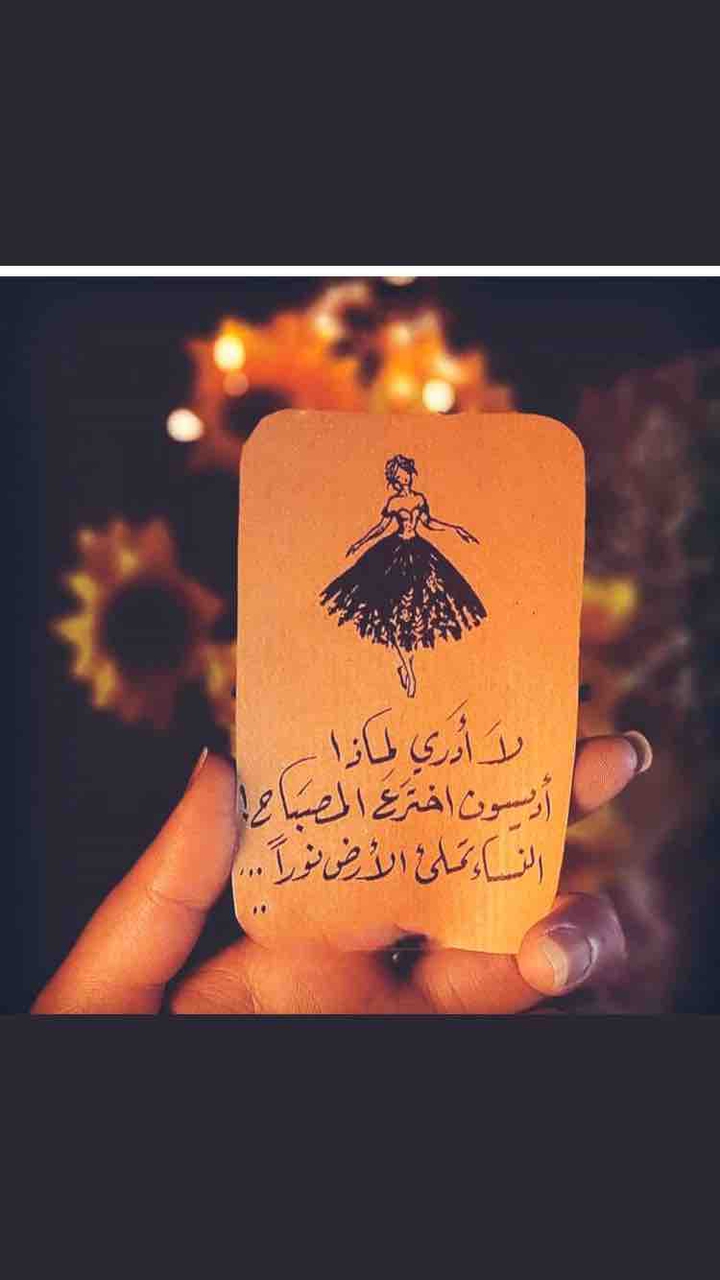 لاَ أدَري لماذا
أديسون اخترَعَ المصبَاح!
النساء تملئ الأرض نوراً ...
..